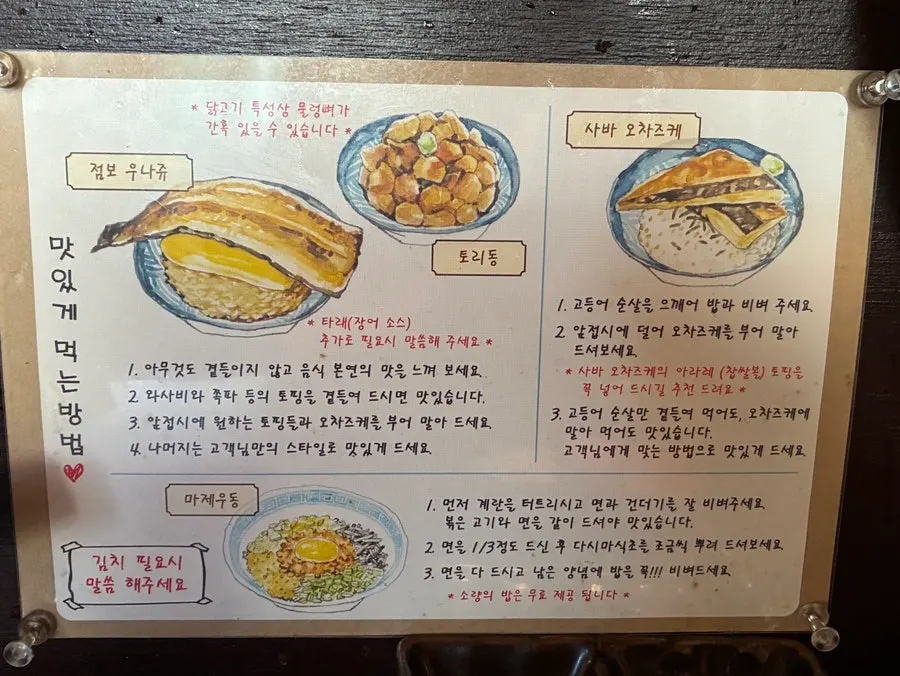 맛있게 먹는방법
* 닭고기 특성상 물렁뼈가
간혹 있을 수 있습니다 *
점보 우나쥬
토리동
* 타래(장어 소스)
추가로 필요시 말씀해 주세요 *
1. 아무것도 곁들이지 않고 음식 본연의 맛을 느껴 보세요.
2. 와사비와 쪽파 등의 토핑을 곁들여 드시면 맛있습니다.
3. 앞접시에 원하는 토핑들과 오차즈케를 부어 말아 드세요.
4. 나머지는 고객님만의 스타일로 맛있게 드세요.
사바 오차즈케
1. 고등어 순살을 으깨어 밥과 비벼 주세요.
2 앞접시에 덜어 오차즈케를 부어 말아
드셔보세요.
* 사바 오차즈케의 아라레 (찹쌀볼) 토핑을
꼭 넣어 드시길 추천 드려요 *
3. 고등어 순살만 곁들여 먹어도, 오차즈케에
말아 먹어도 맛있습니다.
고객님에게 맞는 방법으로 맛있게 드세요.
마제우동
1. 먼저 계란을 터트리시고 면과 건더기를 잘 비벼주세요.
볶은 고기와 면을 같이 드셔야 맛있습니다.
2. 면을 1/3정도 드신 후 다시마식초를 조금씩 뿌려 드셔보세요.
3. 면을 다 드시고 남은 양념에 밥을 꼭!!! 비벼드세요.
* 소량의 밥은 무료 제공 됩니다 *
김치 필요시
말씀 해주세요